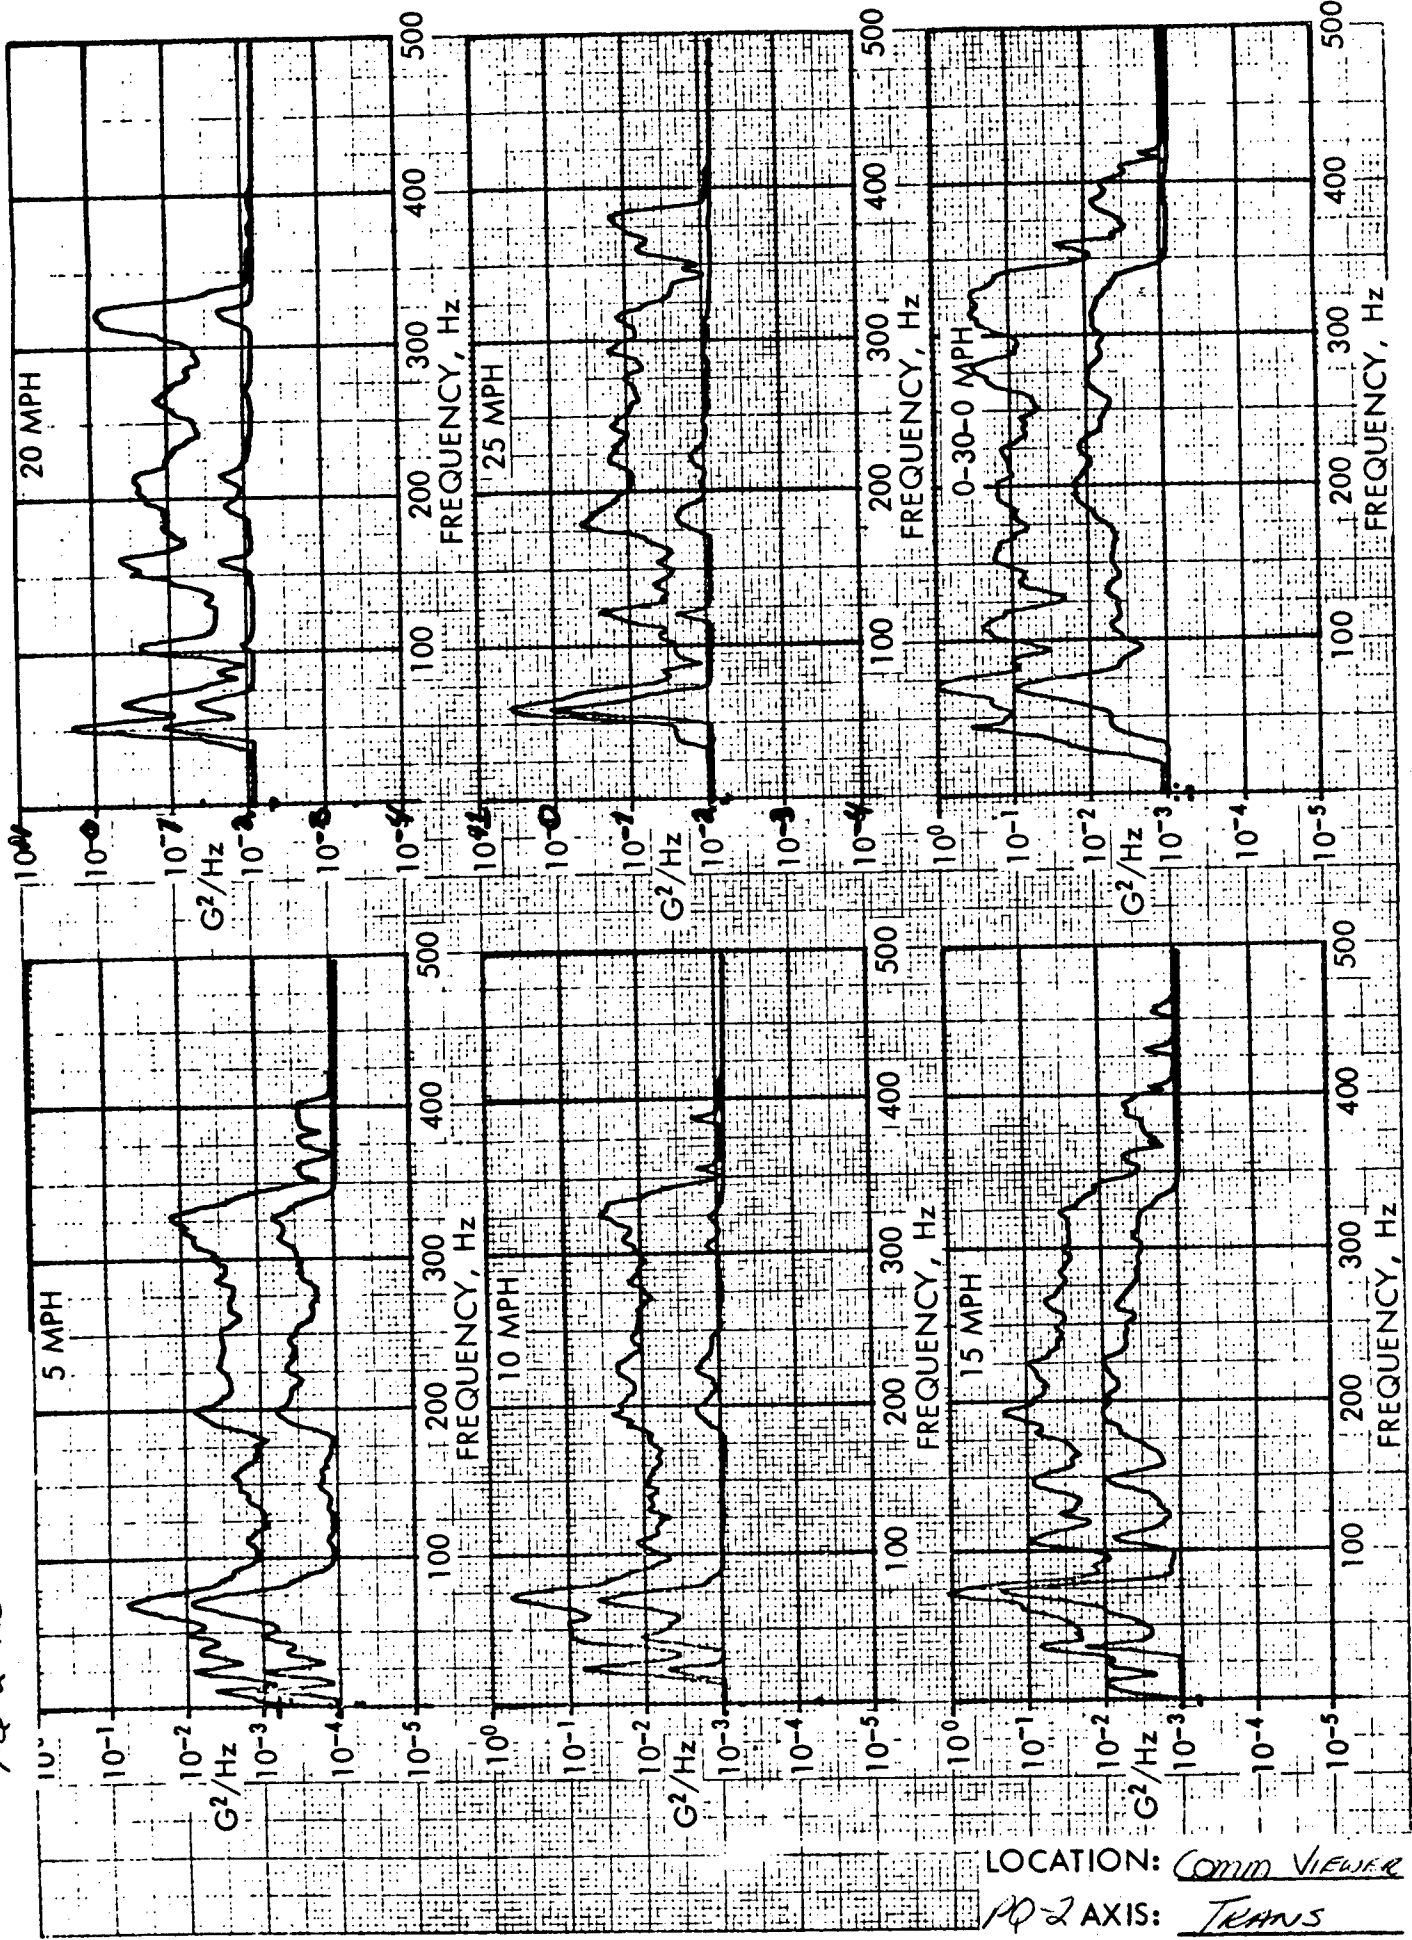 5 MPH
10⁻¹
10⁻²
10⁻³
10⁻⁴
10⁻⁵
G²/Hz
100
200
300
400
500
FREQUENCY, Hz
10 MPH
10⁰
10⁻¹
10⁻²
10⁻³
10⁻⁴
10⁻⁵
G²/Hz
100
200
300
400
500
FREQUENCY, Hz
15 MPH
10⁰
10⁻¹
10⁻²
10⁻³
10⁻⁴
10⁻⁵
G²/Hz
100
200
300
400
500
FREQUENCY, Hz
20 MPH
10⁻⁰
10⁻¹
10⁻²
10⁻³
10⁻⁴
G²/Hz
100
200
300
400
500
FREQUENCY, Hz
25 MPH
10⁻⁰
10⁻¹
10⁻²
10⁻³
10⁻⁴
G²/Hz
100
200
300
400
500
FREQUENCY, Hz
0-30-0 MPH
10⁰
10⁻¹
10⁻²
10⁻³
10⁻⁴
10⁻⁵
G²/Hz
100
200
300
400
500
FREQUENCY, Hz
LOCATION: Comm VIEWER
PQ-2 AXIS: TRANS